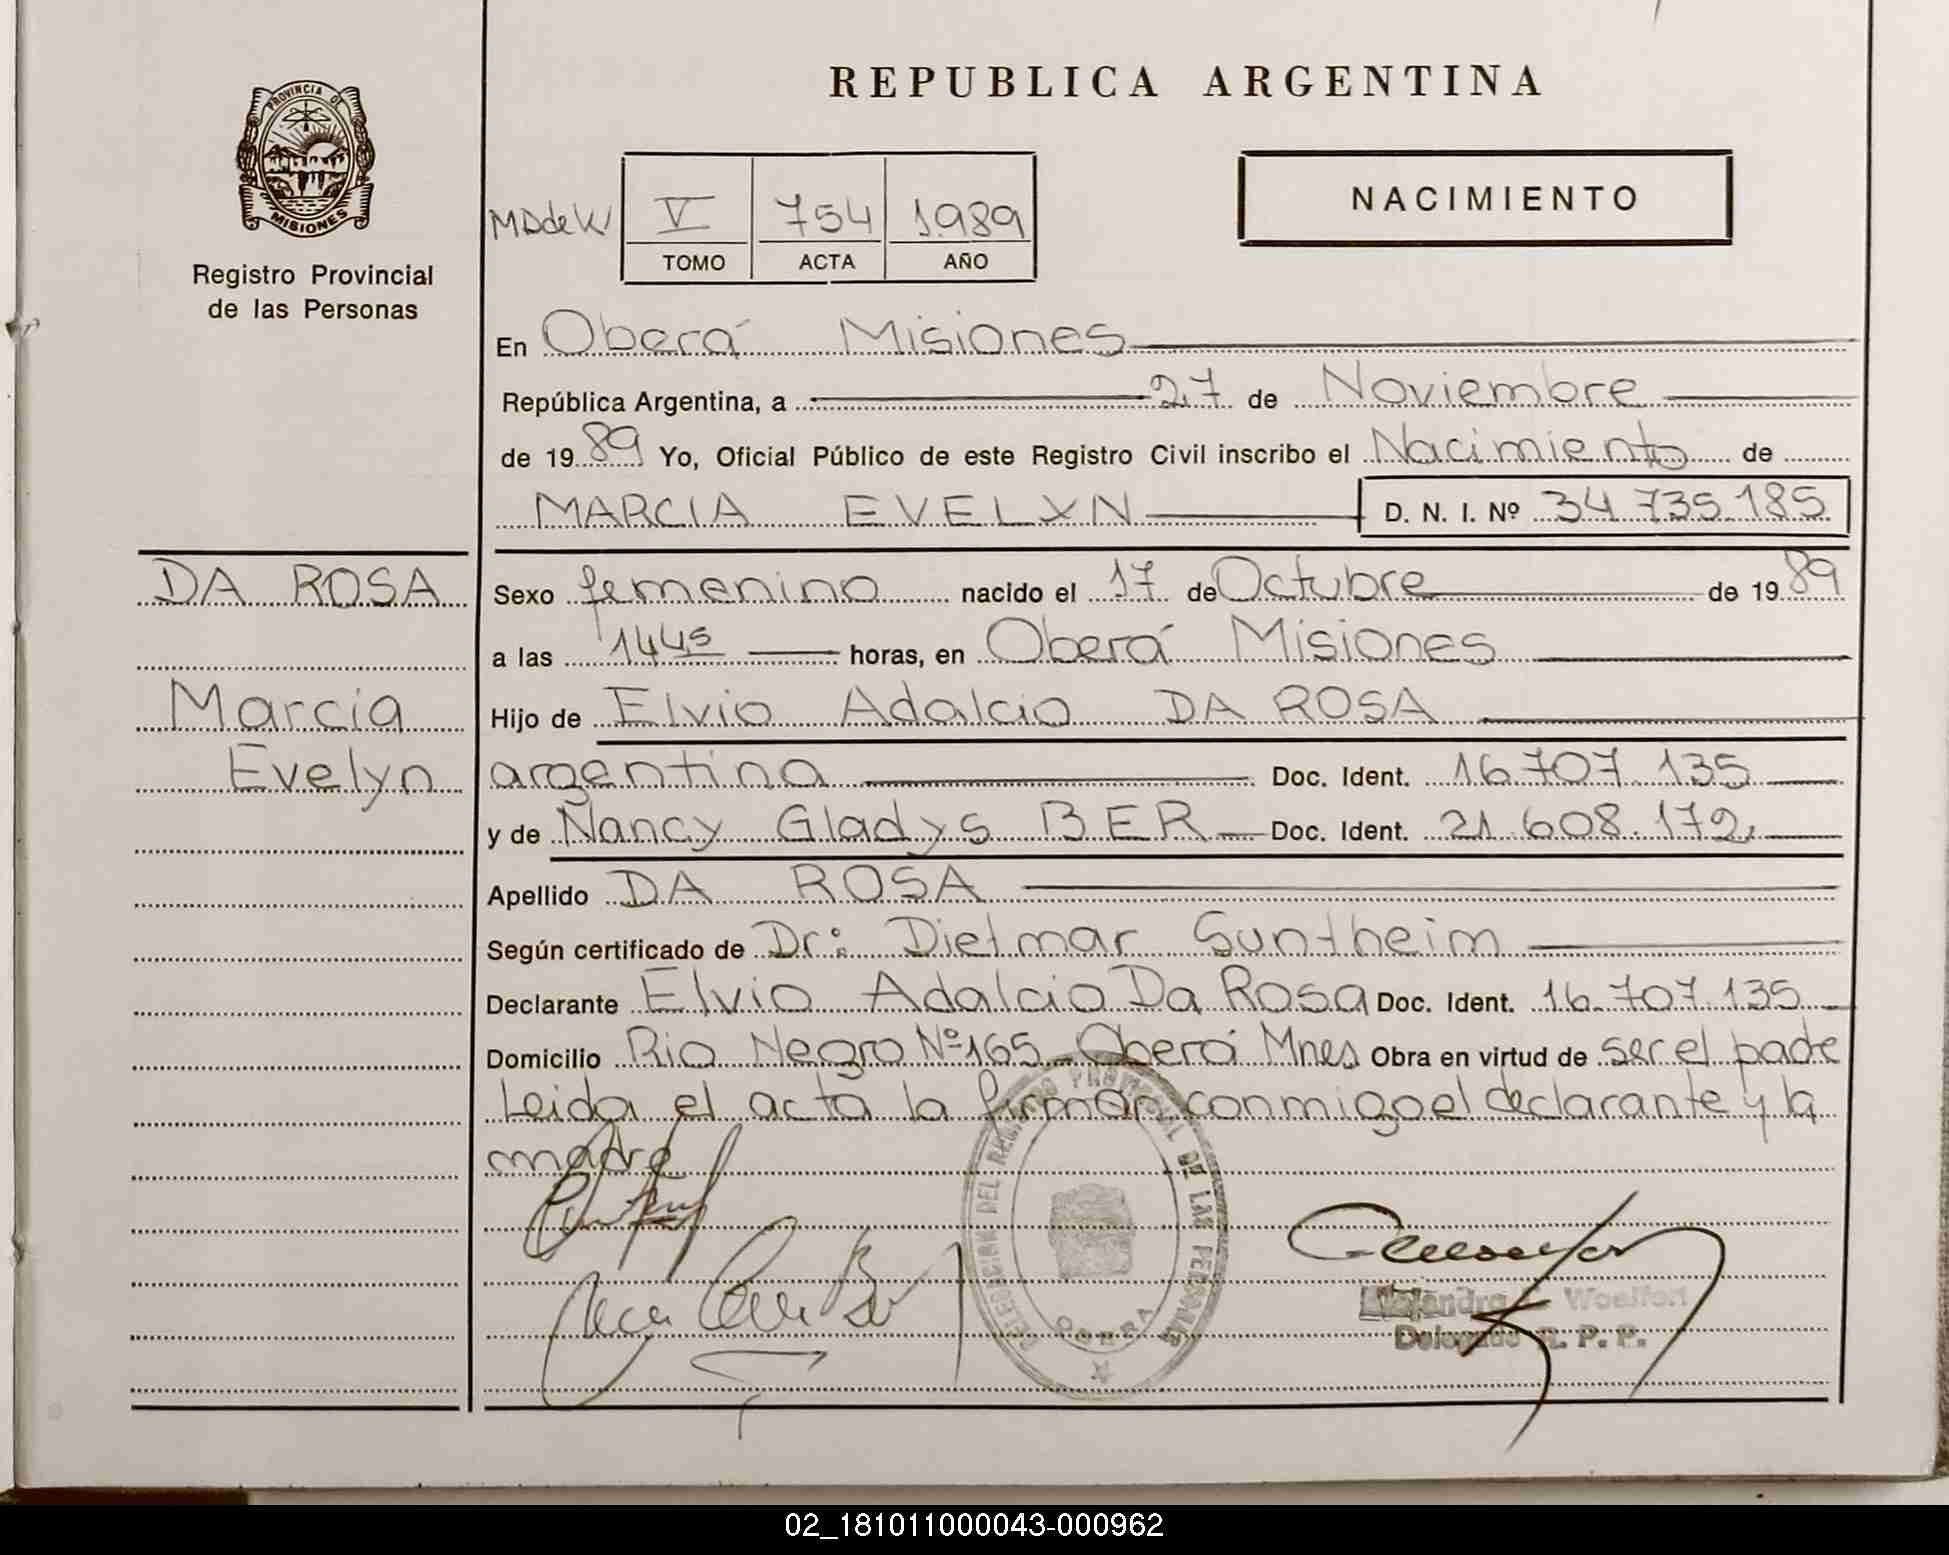 REPUBLICA ARGENTINA
PROVINCIA DE
MISIONES
Registro Provincial
de las Personas
MDdeW
V 754 1989
TOMO ACTA AÑO
NACIMIENTO
En Oberá Misiones
República Argentina, a 27 de Noviembre
de 1989 Yo, Oficial Público de este Registro Civil inscribo el Nacimiento de
MARCIA EVELYN D. N. I. Nº 34.735.185
DA ROSA
Marcia
Evelyn
Sexo femenino nacido el 17 de Octubre de 1989
a las 1445 horas, en Oberá Misiones
Hijo de Elvio Adalcio DA ROSA
argentina Doc. Ident. 16.707.135
y de Nancy Gladys BER Doc. Ident. 21.608.172
Apellido DA ROSA
Según certificado de Dr: Dietmar Suntheim
Declarante Elvio Adalcio Da Rosa Doc. Ident. 16.707.135
Domicilio Rio Negro Nº 165 Oberá Mnes Obra en virtud de ser el padre
Leida el acta la firman conmigo el declarante y la
madre
DELEGACION DEL REGISTRO PROVINCIAL DE LAS PERSONAS
OBERA
Alejandro Woelfert
Delegado R. P. P.
02_181011000043-000962